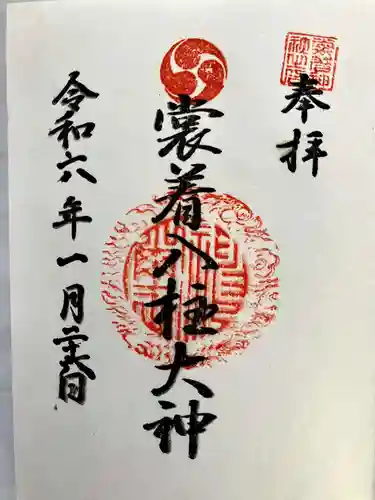 奉拝
裳着八柱大神
令和六年一月二十六日